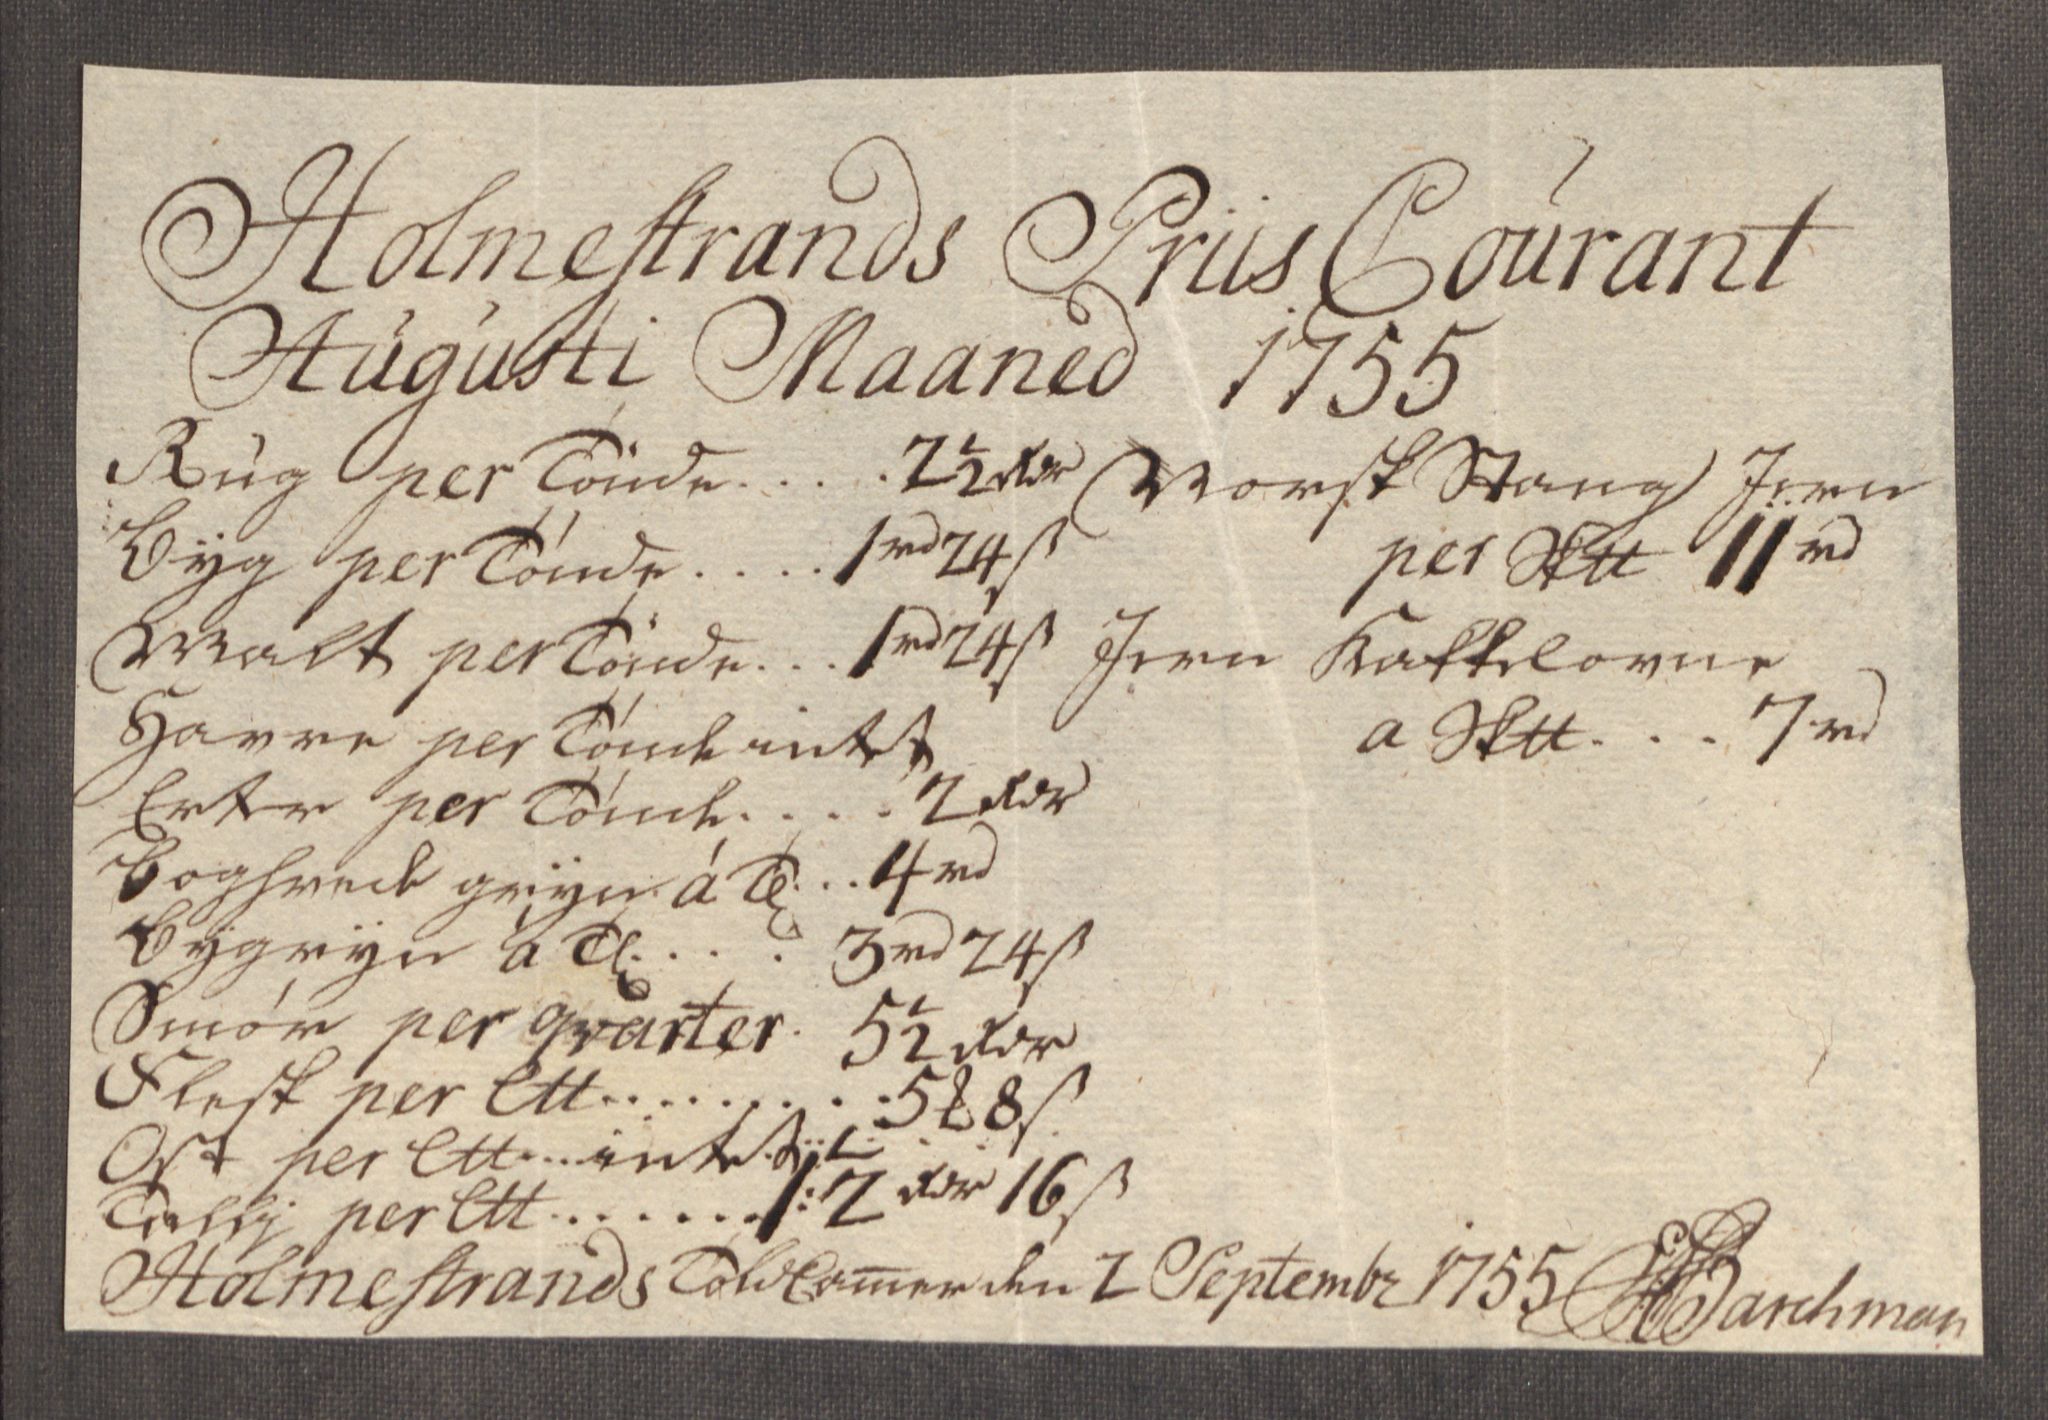 Holmestrands Priis Courant
Augusti Maaned 1755
Rug per Tönde..... 2½ Rdr
Byg per Tönde..... 1rd 24ß
Malt per Tönde... 1rd 24ß
Havre per Tönde intet
Erter per Tönde..... 2 Rdr
Boghvede gryn á Td... 4rd
Byggryn á Td..... 3rd 24ß
Smör per qvarter. 5½ Rdr
Flesk per Ltt......... 8ß
Ost per Ltt... intet
Tallig per Ltt....... 2 Rdr 16ß
Norsk Stang Jern
per Sktt 11rd
Jern Kakkelovne
a Sktt... 7rd
Holmestrands Told Camer den 2 Septembr 1755
Barchman